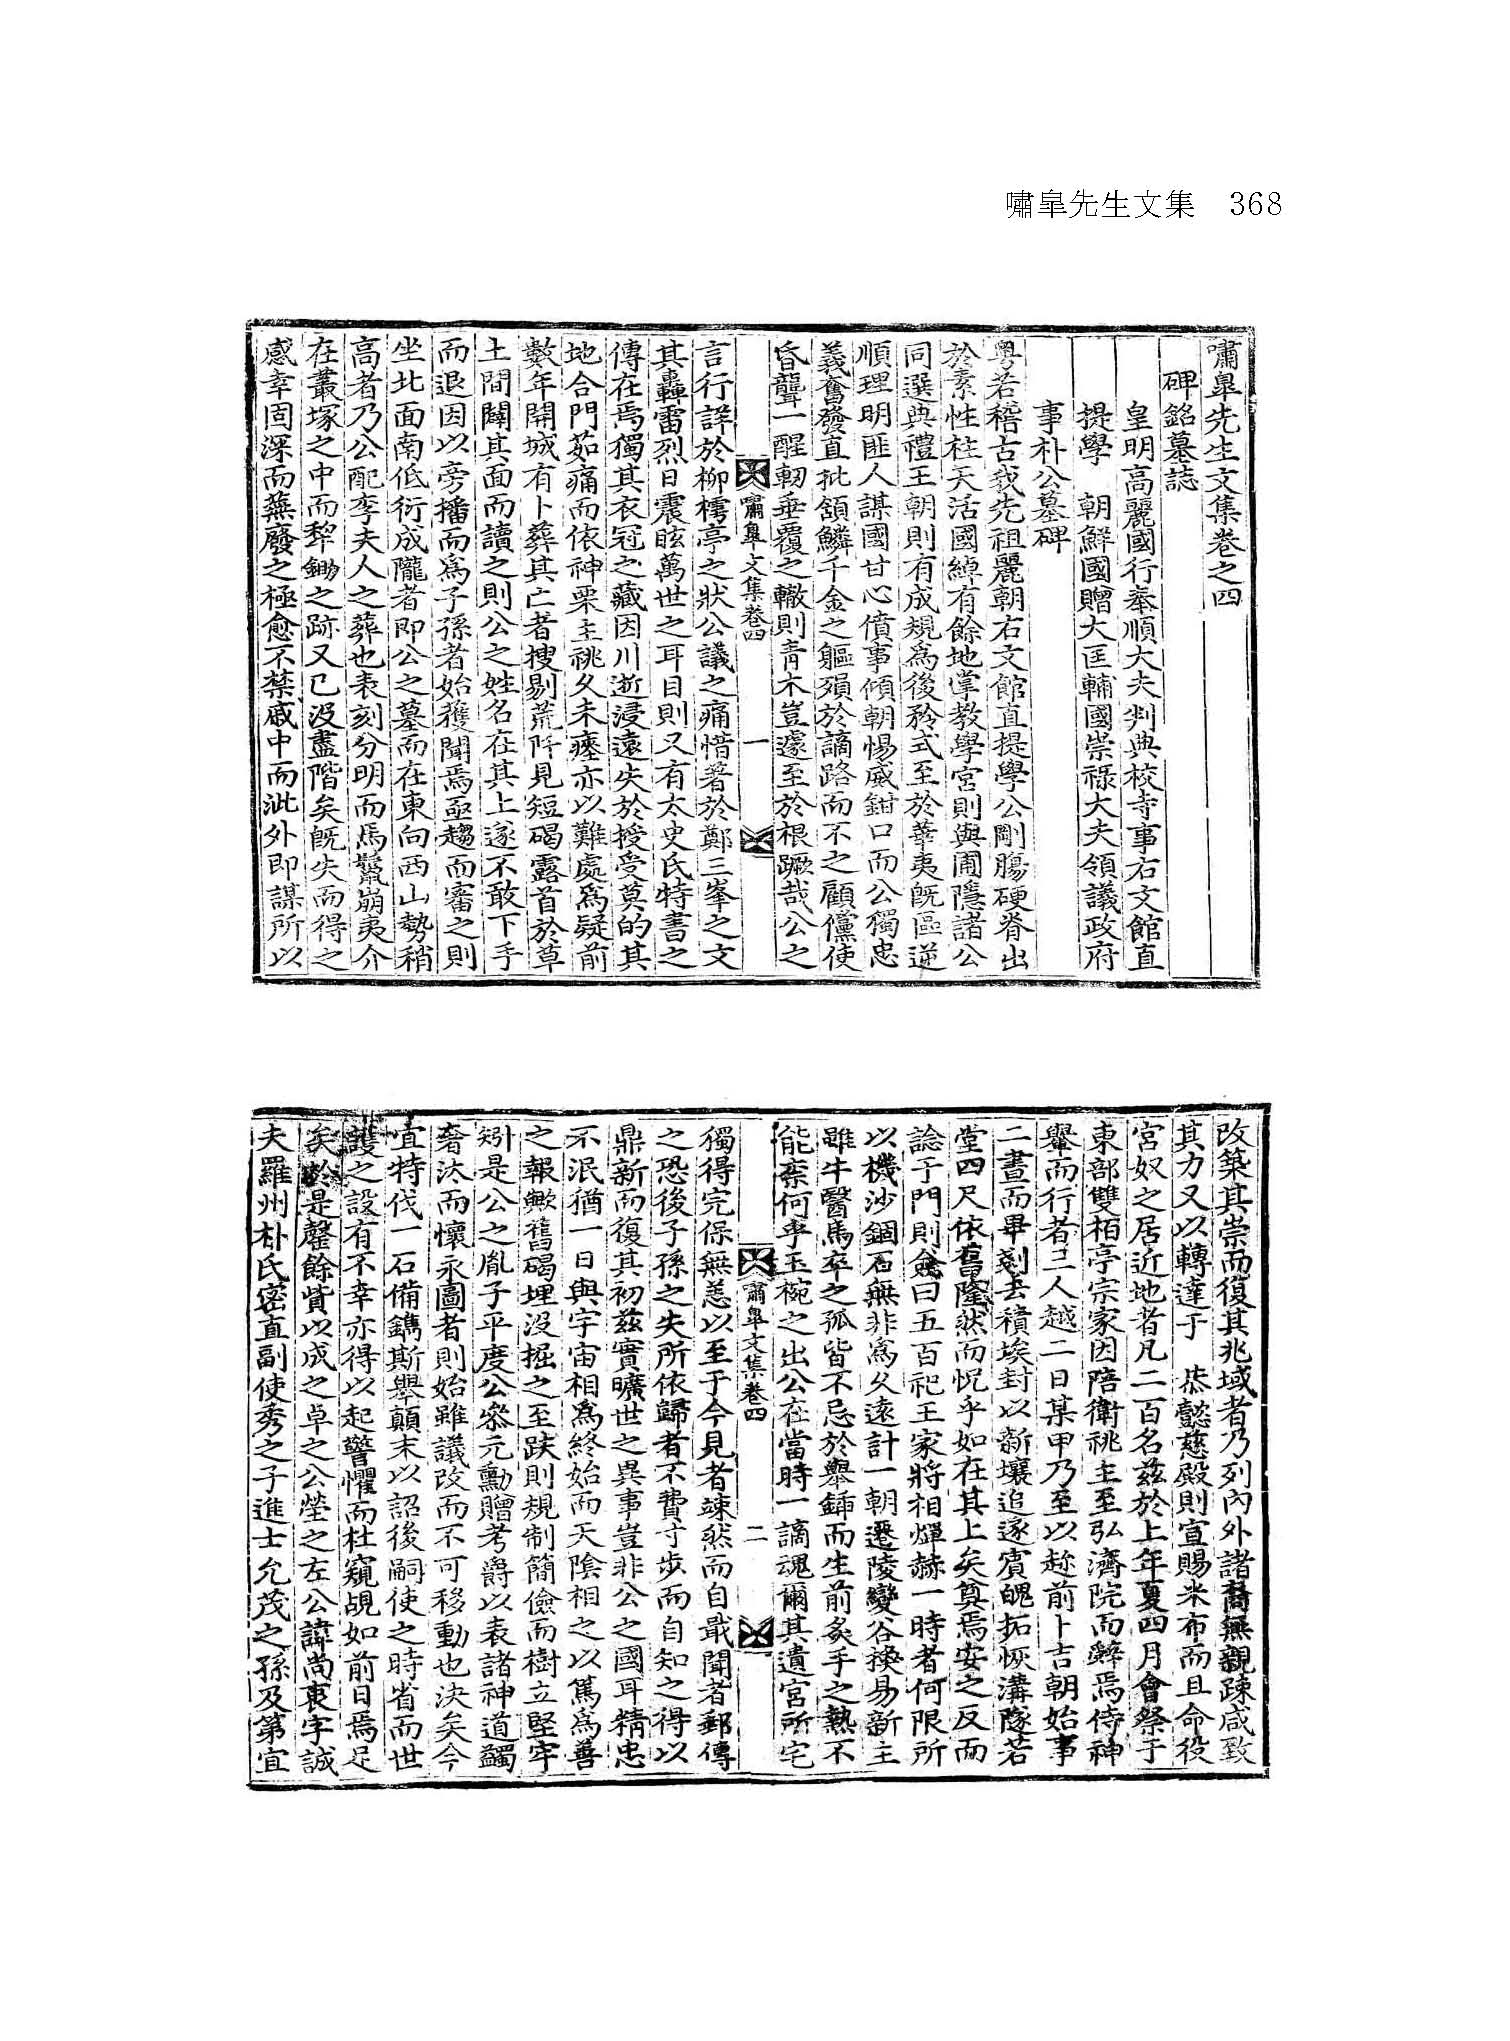 嘯皐先生文集 368
嘯皐先生文集卷之四
碑銘墓誌
皇明高麗國行奉順大夫判典校寺事右文館直
提學 朝鮮國贈大匡輔國崇祿大夫領議政府
事朴公墓碑
粤若稽古我先祖麗朝右文館直提學公剛膓硬脊出
於素性柱天活國綽有餘地掌教學宮則與圃隱諸公
同選典禮王朝則有成規爲後矜式至於華夷旣區逆
順理明匪人謀國甘心僨事傾朝惕威鉗口而公獨忠
義奮發直批頷鱗千金之軀殞於謫路而不之顧儻使
昏聾一醒軔垂覆之轍則靑木豈遽至於根蹶哉公之
嘯皐文集卷四 一
言行詳於柳樗亭之狀公議之痛惜著於鄭三峯之文
其轟雷烈日震眩萬世之耳目則又有太史氏特書之
傳在焉獨其衣冠之藏因川逝浸遠失於授受莫的其
地合門茹痛而依神栗主祧久未瘞亦以難處爲疑前
數年開城有卜葬其亡者搜剔荒阡見短碣露首於草
土間闢其面而讀之則公之姓名在其上遂不敢下手
而退因以旁播而爲子孫者始獲聞焉亟趨而審之則
坐北面南低衍成隴者即公之墓而在東向西山勢稍
高者乃公配李夫人之葬也表刻分明而馬鬣崩夷介
在叢塚之中而犂鋤之跡又已沒盡階矣旣失而得之
感幸固深而蕪廢之極愈不禁戚中而泚外即謀所以
改築其崇而復其兆域者乃列內外諸裔無親疎咸致
其力又以轉達于 恭懿慈殿則宣賜米布而且命役
宮奴之居近地者凡二百名茲於上年夏四月會祭于
東部雙栢亭宗家因陪衛祧主至弘濟院而辭焉侍神
轝而行者三人越二日某甲乃至以趂前卜吉朝始事
二晝而畢剗去積埃封以新壤追逐賓魄拓恢溝隧若
堂四尺依舊隆然而怳乎如在其上矣奠焉安之反而
諗于門則僉曰五百祀王家將相燀赫一時者何限所
以機沙錮石無非爲久遠計一朝遷陵變谷換易新主
雖牛醫馬卒之孤皆不忌於擧鍤而生前炙手之熱不
能柰何乎玉椀之出公在當時一謫魂爾其遺宮所宅
嘯皐文集卷四 二
獨得完保無恙以至于今見者竦然而自戢聞者郵傳
之恐後子孫之失所依歸者不費寸步而自知之得以
鼎新而復其初茲實曠世之異事豈非公之國耳精忠
不泯猶一日與宇宙相爲終始而天陰相之以篤爲善
之報歟舊碣埋沒掘之至趺則規制簡儉而樹立堅牢
矧是公之胤子平度公叅元勳贈考爵以表諸神道蠲
奢汰而懷永圖者則始雖議改而不可移動也決矣今
宜特伐一石備鐫斯擧顚末以詔後嗣使之時省而世
護之設有不幸亦得以起警懼而杜窺覘如前日焉足
矣於是罄餘貲以成之卓之公塋之左公諱尚衷字誠
夫羅州朴氏密直副使秀之子進士允茂之孫及第宜